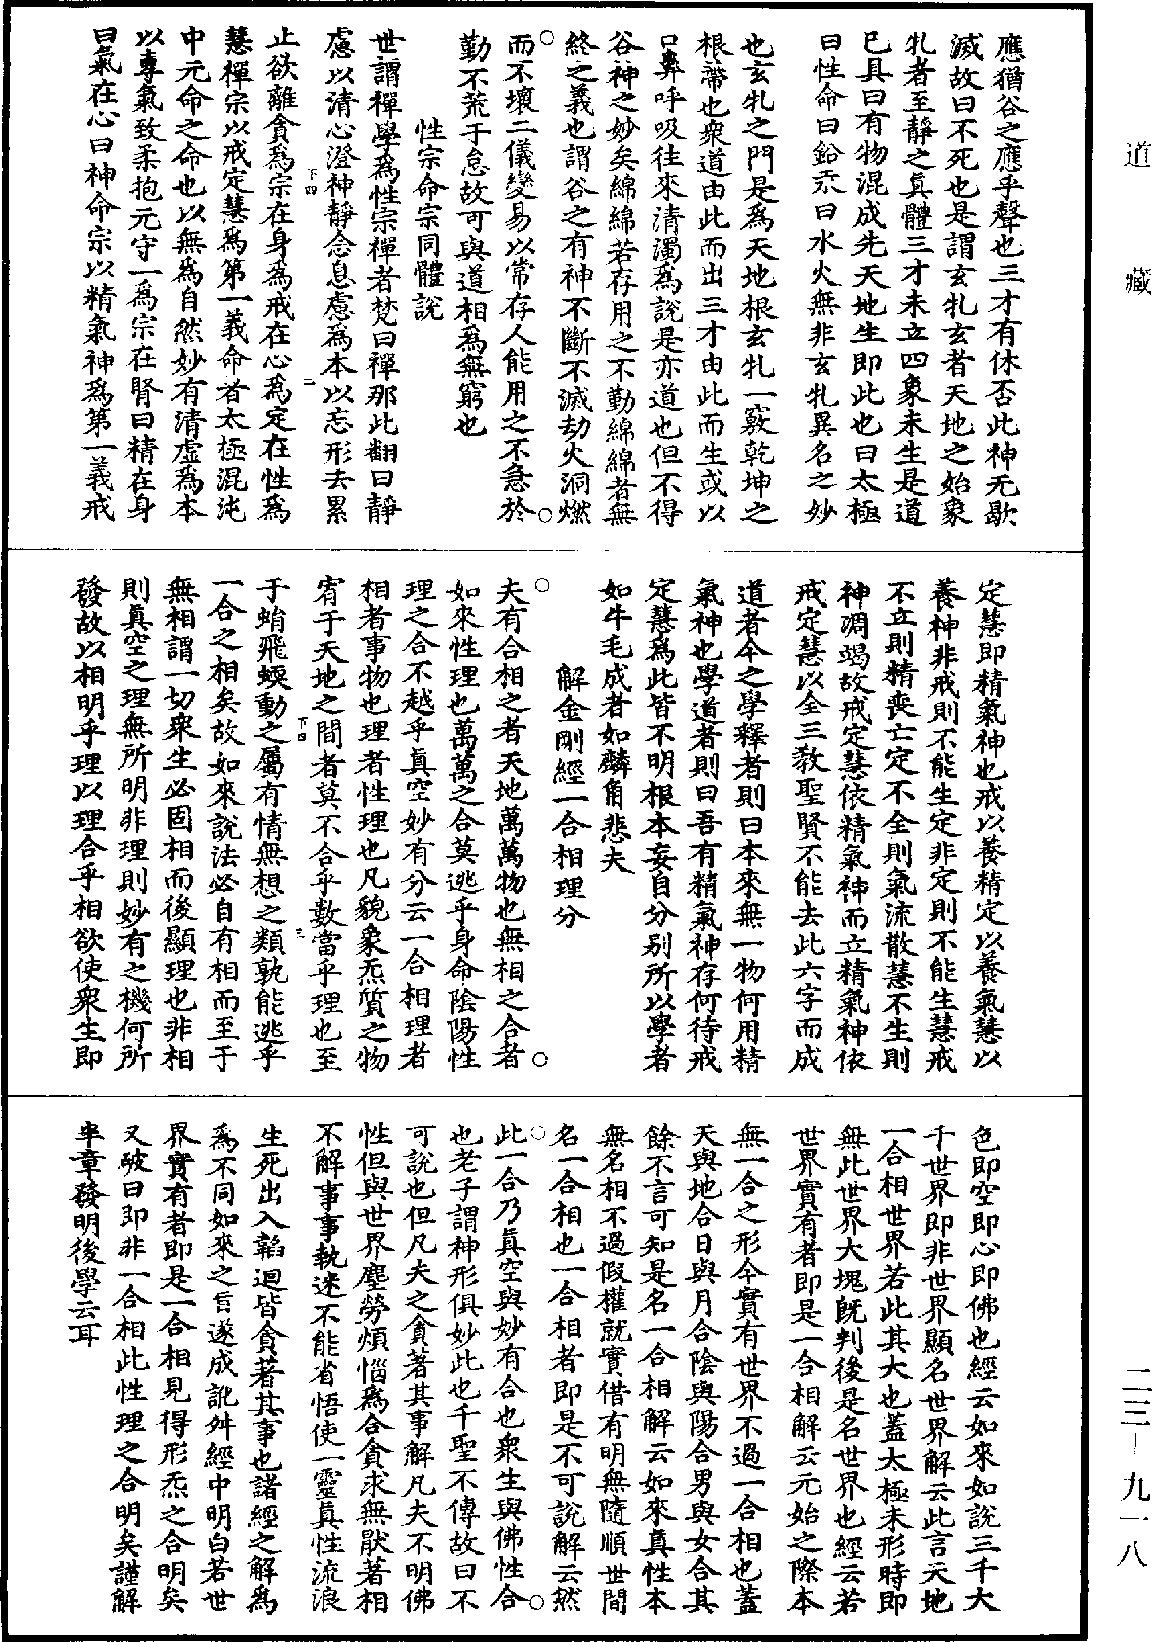 道藏
二三—九一八
應猶谷之應乎聲也三才有休否此神无歇
滅故曰不死也是謂玄牝玄者天地之始象
牝者至靜之真體三才未立四象未生是道
已具曰有物混成先天地生即此也曰太極
曰性命曰鉛汞曰水火無非玄牝異名之妙
也玄牝之門是為天地根玄牝一竅乾坤之
根蔕也衆道由此而出三才由此而生或以
口鼻呼吸往來清濁為說是亦道也但不得
谷神之妙矣綿綿若存用之不勤綿綿者無
終之義也謂谷之有神不斷不滅劫火洞燃
而不壞二儀變易以常存人能用之不急於
勤不荒于怠故可與道相為無窮也
性宗命宗同體說
世謂禪學為性宗禪者梵曰禪那此翻曰靜
慮以清心澄神靜念息慮為本以忘形去累
下四
二
止欲離貪為宗在身為戒在心為定在性為
慧禪宗以戒定慧為第一義命者太極混沌
中元命之命也以無為自然妙有清虛為本
以專氣致柔抱元守一為宗在腎曰精在身
曰氣在心曰神命宗以精氣神為第一義戒
定慧即精氣神也戒以養精定以養氣慧以
養神非戒則不能生定非定則不能生慧戒
不立則精喪亡定不全則氣流散慧不生則
神凋竭故戒定慧依精氣神而立精氣神依
戒定慧以全三教聖賢不能去此六字而成
道者今之學釋者則曰本來無一物何用精
氣神也學道者則曰吾有精氣神存何待戒
定慧為此皆不明根本妄自分別所以學者
如牛毛成者如麟角悲夫
解金剛經一合相理分
夫有合相之者天地萬萬物也無相之合者
如來性理也萬萬之合莫逃乎身命陰陽性
理之合不越乎真空妙有分云一合相理者
相者事物也理者性理也凡貌象炁質之物
宥于天地之間者莫不合乎數當乎理也至
下四
三
于蛸飛蝡動之屬有情無想之類孰能逃乎
一合之相矣故如來說法必自有相而至于
無相謂一切衆生必固相而後顯理也非相
則真空之理無所明非理則妙有之機何所
發故以相明乎理以理合乎相欲使衆生即
色即空即心即佛也經云如來如說三千大
千世界即非世界顯名世界解云此言天地
一合相世界若此其大也蓋太極未形時即
無此世界大塊既判後是名世界也經云若
世界實有者即是一合相解云元始之際本
無一合之形今實有世界不過一合相也蓋
天與地合日與月合陰與陽合男與女合其
餘不言可知是名一合相解云如來真性本
無名相不過假權就實借有明無隨順世間
名一合相也一合相者即是不可說解云然
此一合乃真空與妙有合也衆生與佛性合
也老子謂神形俱妙此也千聖不傳故曰不
可說也但凡夫之貪著其事解凡夫不明佛
性但與世界塵勞煩惱為合貪求無厭著相
不解事事執迷不能省悟使一靈真性流浪
生死出入輪迴皆貪著其事也諸經之解為
為不同如來之言遂成訛舛經中明白若世
界實有者即是一合相見得形炁之合明矣
又破曰即非一合相此性理之合明矣謹解
半章發明後學云耳